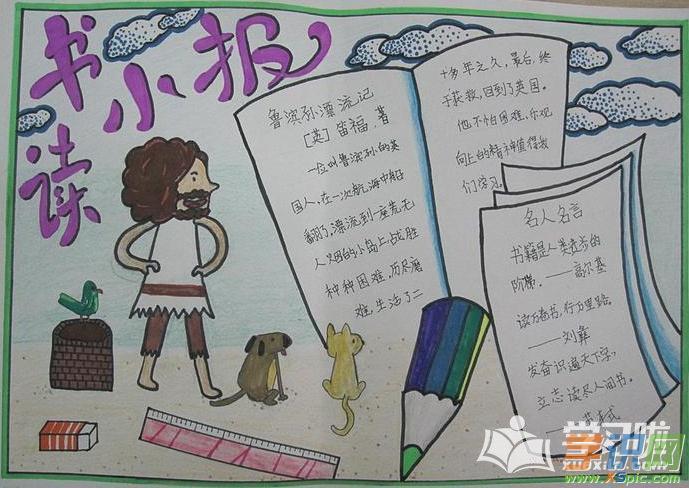 读书小报
鲁滨孙漂流记
[英]笛福,著
一位叫鲁滨孙的英
国人,在一次航海中船
翻了,漂流到一座荒无
人烟的小岛上,战胜
种种困难,历尽磨
难,生活了二
十多年之久,最后,终
于获救,回到了英国。
他不怕困难,乐观
向上的精神值得我
们学习。
名人名言
书籍是人类进步的
阶梯。——高尔基
读万卷书,行万里路。
——刘彝
发奋识遍天下字,
立志读尽人间书。
学习啦
学识网
www.XSpic.com